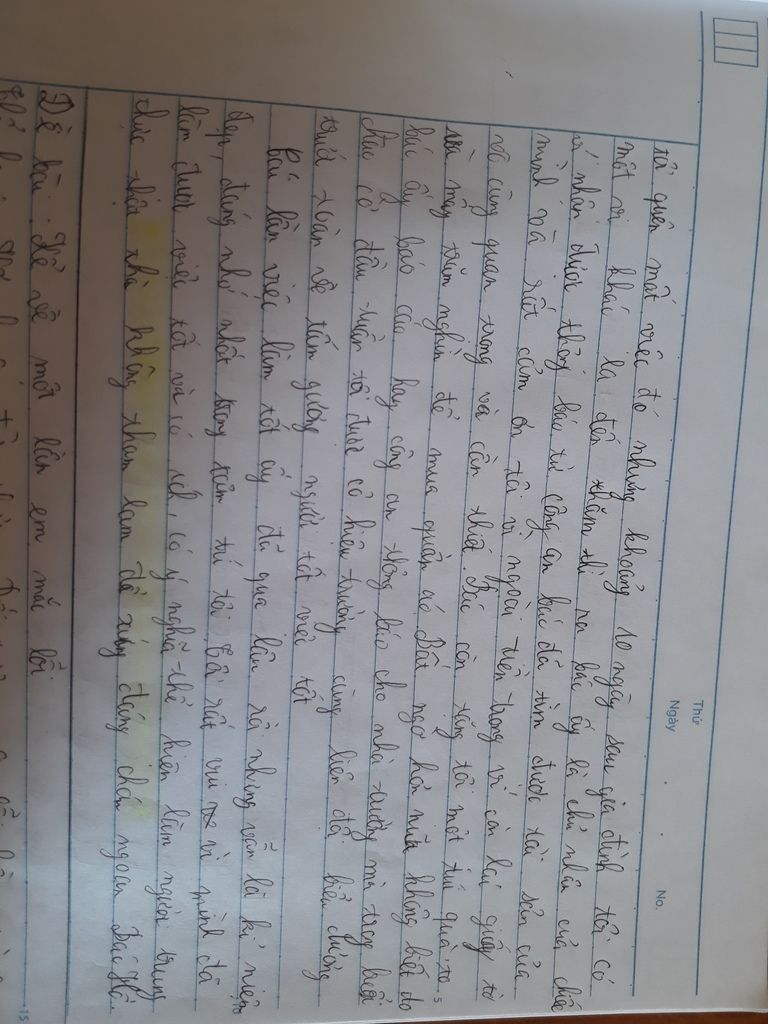 Thứ
Ngày
No.
tôi quên mất việc đó nhưng khoảng 10 ngày sau gia đình tôi có
một vị khách lạ đến thăm thì ra bác ấy là chủ nhân của chiếc
ví nhận được thông báo từ công an bác đã tìm được tài sản của
mình và rất cảm ơn tôi vì ngoài tiền trong ví còn lại giấy tờ
vô cùng quan trọng và cần thiết. Bác còn tặng tôi một túi quà to
và mấy trăm nghìn để mua quần áo Bất ngờ hơn nữa không biết do
bác ấy báo cáo hay công an thông báo cho nhà trường mà trong buổi
chào cờ đầu tuần tôi được cô hiệu trưởng cùng liên đội biểu dương
trước toàn về tấm gương người tốt việc tốt
Bao lần việc làm tốt ấy đã qua lâu rồi nhưng vẫn là kỉ niệm
đẹp, đáng nhớ nhất trong tâm trí tôi rất vui vì mình đã
làm được việc tốt và có ích, có ý nghĩa thể hiện làm người trung
thực thật thà không tham lam để xứng đáng cháu ngoan Bác Hồ.
Đề bài: Kể về một lần em mắc lỗi
5
10
15